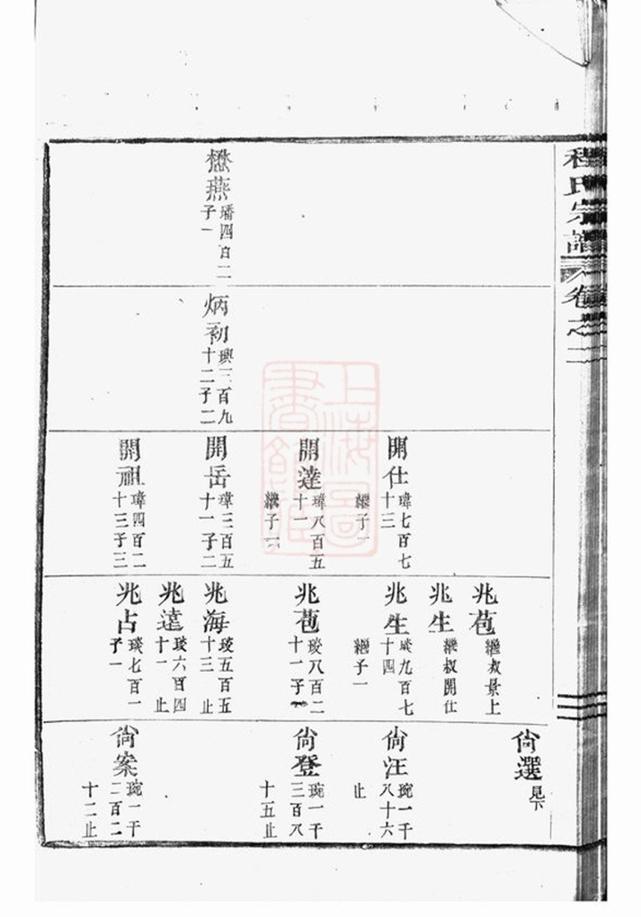 程氏宗譜
卷之二
懋燕
璠四百二
子一
炳初
璵三百九
十二子二
開仕
瑋七百七
十三
繼子一
開達
瑋八百五
十一
繼子一
開岳
瑋三百五
十一子二
開祖
瑋四百二
十三子三
兆苞
繼叔景上
兆生
繼叔開仕
兆生
琰九百七
十四
繼子一
兆苞
琰八百二
十一子一
兆海
琰五百五
十三 止
兆達
琰六百四
十一 止
兆占
琰七百一
子一
尙選
見下
尙汪
琬一千
八十六
止
尙登
琬一千
三百八
十五止
尙案
琬一千
二百二
十二止
上海圖書館藏